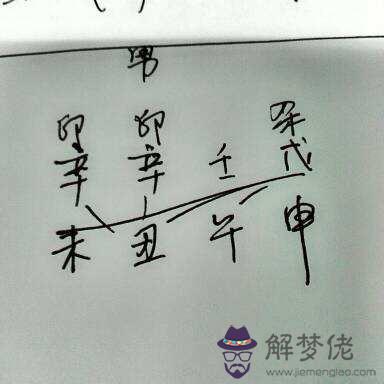 男
印 印 杀
辛 辛 壬 戊
未 丑 午 申
解梦佬
www.jiemenglao.com